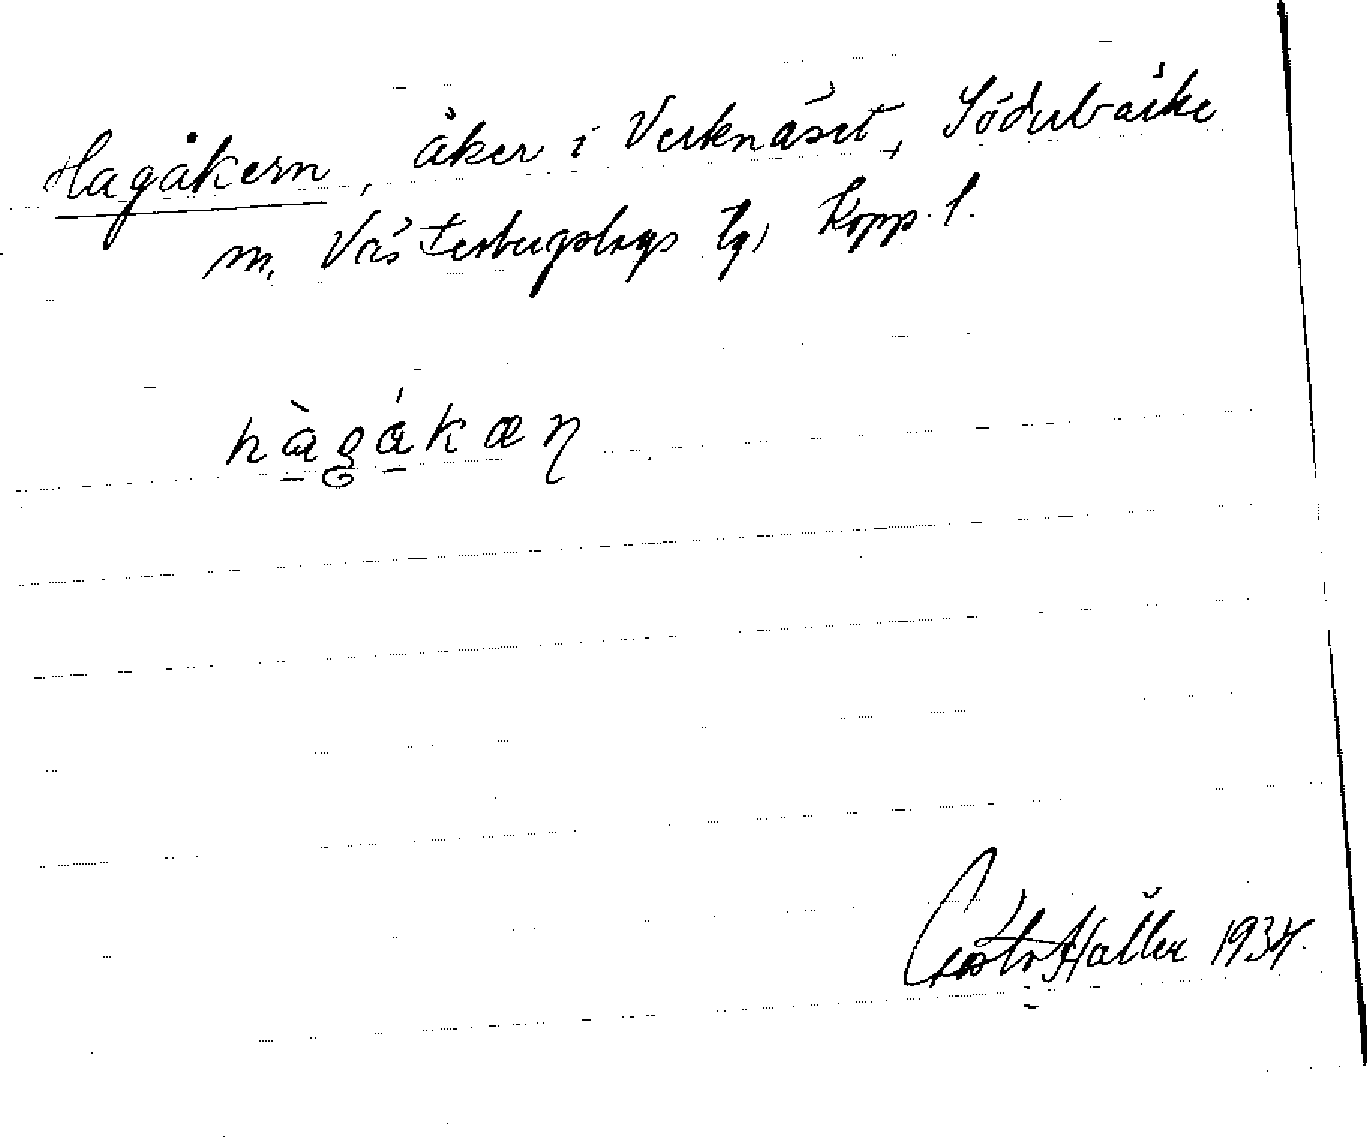 Hagåkern, åker i Verknäset, Söderbärke
m, Västerbergslags tg, Kopp. l.
hàgákæn
Gösta Haller 1934.